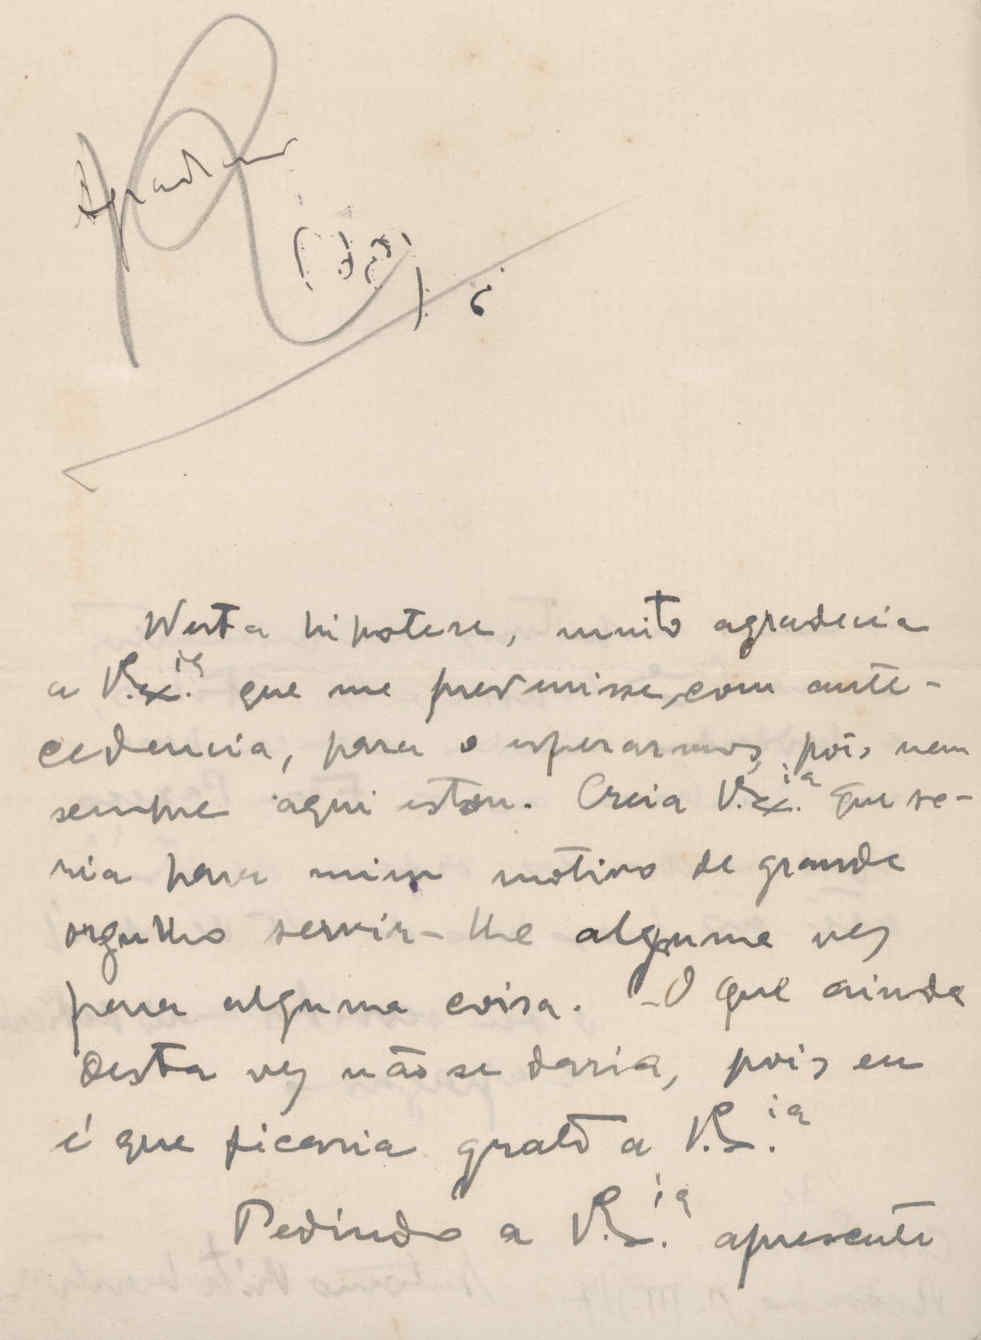 R
Agradecer
Nesta hipotese, muito agradecia
a V. Ex.ia que me prevenisse, com ante-
cedencia, para o esperarmos, pois nem
sempre aqui estou. Creia V. Ex.ia que se-
ria para mim motivo de grande
orgulho servir-lhe alguma vez
para alguma coisa. - O que ainda
desta vez não se daria, pois eu
é que ficaria grato a V. S.ia
Pedindo a V. S.ia apresente